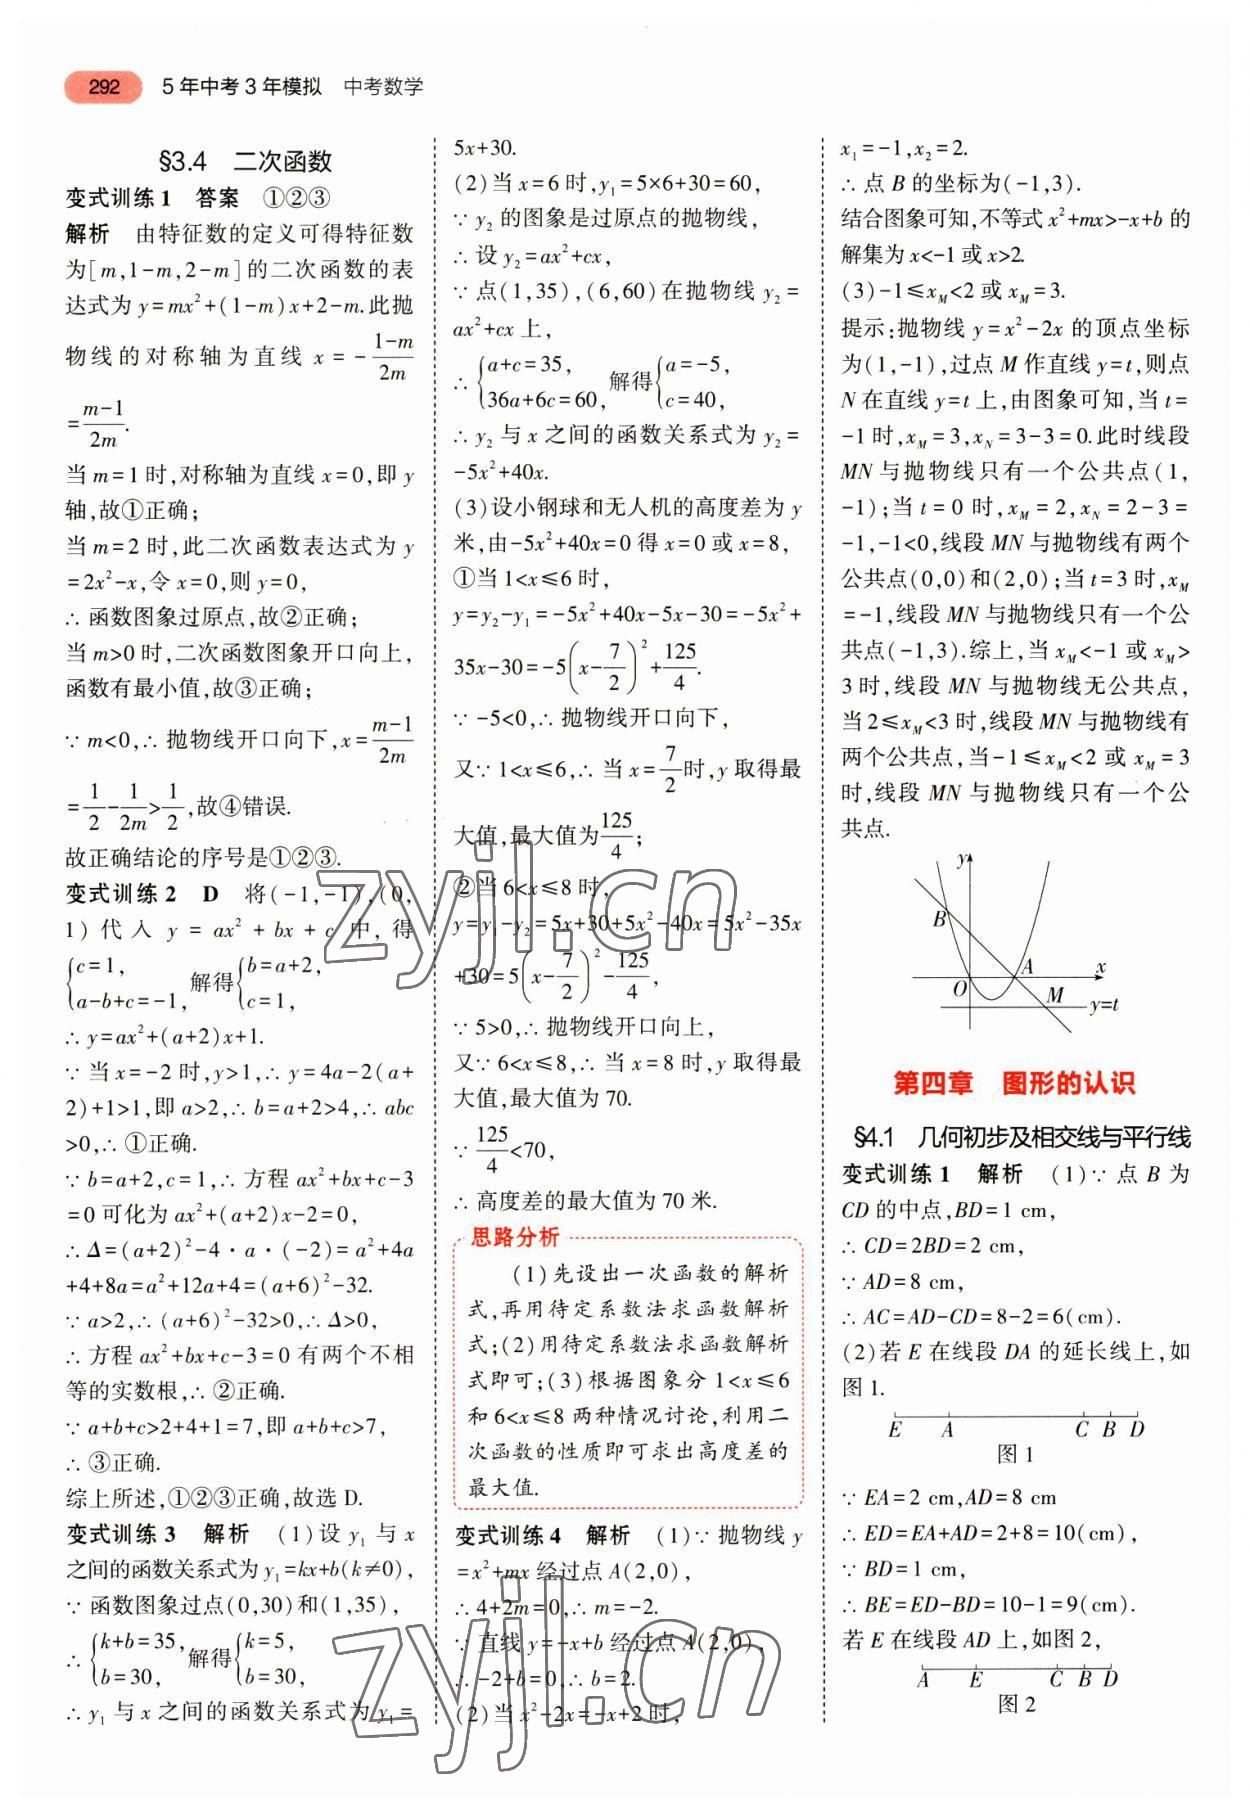 292 5年中考3年模拟 中考数学
§3.4 二次函数
变式训练1 答案 ①②③
解析 由特征数的定义可得特征数
为[m,1-m,2-m]的二次函数的表
达式为y=mx²+(1-m)x+2-m.此抛
物线的对称轴为直线 x=-\frac{1-m}{2m}
=\frac{m-1}{2m}.
当m=1时,对称轴为直线x=0,即y
轴,故①正确;
当m=2时,此二次函数表达式为y
=2x²-x,令x=0,则y=0,
∴函数图象过原点,故②正确;
当m>0时,二次函数图象开口向上,
函数有最小值,故③正确;
∵m<0,∴抛物线开口向下,x=\frac{m-1}{2m}
=\frac{1}{2}-\frac{1}{2m}>\frac{1}{2},故④错误.
故正确结论的序号是①②③.
变式训练2 D 将(-1,-1),(0,
1)代入 y=ax²+bx+c中,得
{c=1, a-b+c=-1, 解得{b=a+2, c=1,
∴y=ax²+(a+2)x+1.
∵当x=-2时,y>1,∴y=4a-2(a+
2)+1>1,即a>2,∴b=a+2>4,∴abc
>0,∴①正确.
∵b=a+2,c=1,∴方程ax²+bx+c-3
=0可化为ax²+(a+2)x-2=0,
∴Δ=(a+2)²-4·a·(-2)=a²+4a
+4+8a=a²+12a+4=(a+6)²-32.
∵a>2,∴(a+6)²-32>0,∴Δ>0,
∴方程ax²+bx+c-3=0有两个不相
等的实数根,∴②正确.
∵a+b+c>2+4+1=7,即a+b+c>7,
∴③正确.
综上所述,①②③正确,故选D.
变式训练3 解析 (1)设y₁与x
之间的函数关系式为y₁=kx+b(k≠0),
∵函数图象过点(0,30)和(1,35),
∴{k+b=35, b=30, 解得{k=5, b=30,
∴y₁与x之间的函数关系式为y₁=
5x+30.
(2)当x=6时,y₁=5×6+30=60,
∵y₂的图象是过原点的抛物线,
∴设y₂=ax²+cx,
∵点(1,35),(6,60)在抛物线y₂=
ax²+cx上,
∴{a+c=35, 36a+6c=60, 解得{a=-5, c=40,
∴y₂与x之间的函数关系式为y₂=
-5x²+40x.
(3)设小钢球和无人机的高度差为y
米,由-5x²+40x=0得x=0或x=8,
①当1<x≤6时,
y=y₂-y₁=-5x²+40x-5x-30=-5x²+
35x-30=-5(x-\frac{7}{2})²+\frac{125}{4}.
∵-5<0,∴抛物线开口向下,
又∵1<x≤6,∴当x=\frac{7}{2}时,y取得最
大值,最大值为\frac{125}{4};
②当6<x≤8时,
y=y₁-y₂=5x+30+5x²-40x=5x²-35x
+30=5(x-\frac{7}{2})²-\frac{125}{4},
∵5>0,∴抛物线开口向上,
又∵6<x≤8,∴当x=8时,y取得最
大值,最大值为70.
∵\frac{125}{4}<70,
∴高度差的最大值为70米.
思路分析
(1)先设出一次函数的解析
式,再用待定系数法求函数解析
式;(2)用待定系数法求函数解析
式即可;(3)根据图象分1<x≤6
和6<x≤8两种情况讨论,利用二
次函数的性质即可求出高度差的
最大值.
变式训练4 解析 (1)∵抛物线y
=x²+mx经过点A(2,0),
∴4+2m=0,∴m=-2.
∵直线y=-x+b经过点A(2,0),
∴-2+b=0,∴b=2.
(2)当x²-2x=-x+2时,
x₁=-1,x₂=2.
∴点B的坐标为(-1,3).
结合图象可知,不等式x²+mx>-x+b的
解集为x<-1或x>2.
(3)-1≤x_M<2或x_M=3.
提示:抛物线y=x²-2x的顶点坐标
为(1,-1),过点M作直线y=t,则点
N在直线y=t上,由图象可知,当t=
-1时,x_M=3,x_N=3-3=0.此时线段
MN与抛物线只有一个公共点(1,
-1);当t=0时,x_M=2,x_N=2-3=
-1,-1<0,线段MN与抛物线有两个
公共点(0,0)和(2,0);当t=3时,x_M
=-1,线段MN与抛物线只有一个公
共点(-1,3).综上,当x_M<-1或x_M>
3时,线段MN与抛物线无公共点,
当2≤x_M<3时,线段MN与抛物线有
两个公共点,当-1≤x_M<2或x_M=3
时,线段MN与抛物线只有一个公
共点.
y
B
A
x
O
M
y=t
第四章 图形的认识
§4.1 几何初步及相交线与平行线
变式训练1 解析 (1)∵点B为
CD的中点,BD=1 cm,
∴CD=2BD=2 cm,
∵AD=8 cm,
∴AC=AD-CD=8-2=6(cm).
(2)若E在线段DA的延长线上,如
图1.
E A C B D
图1
∵EA=2 cm,AD=8 cm
∴ED=EA+AD=2+8=10(cm),
∵BD=1 cm,
∴BE=ED-BD=10-1=9(cm).
若E在线段AD上,如图2,
A E C B D
图2
zyjl.cn
zyjl.cn